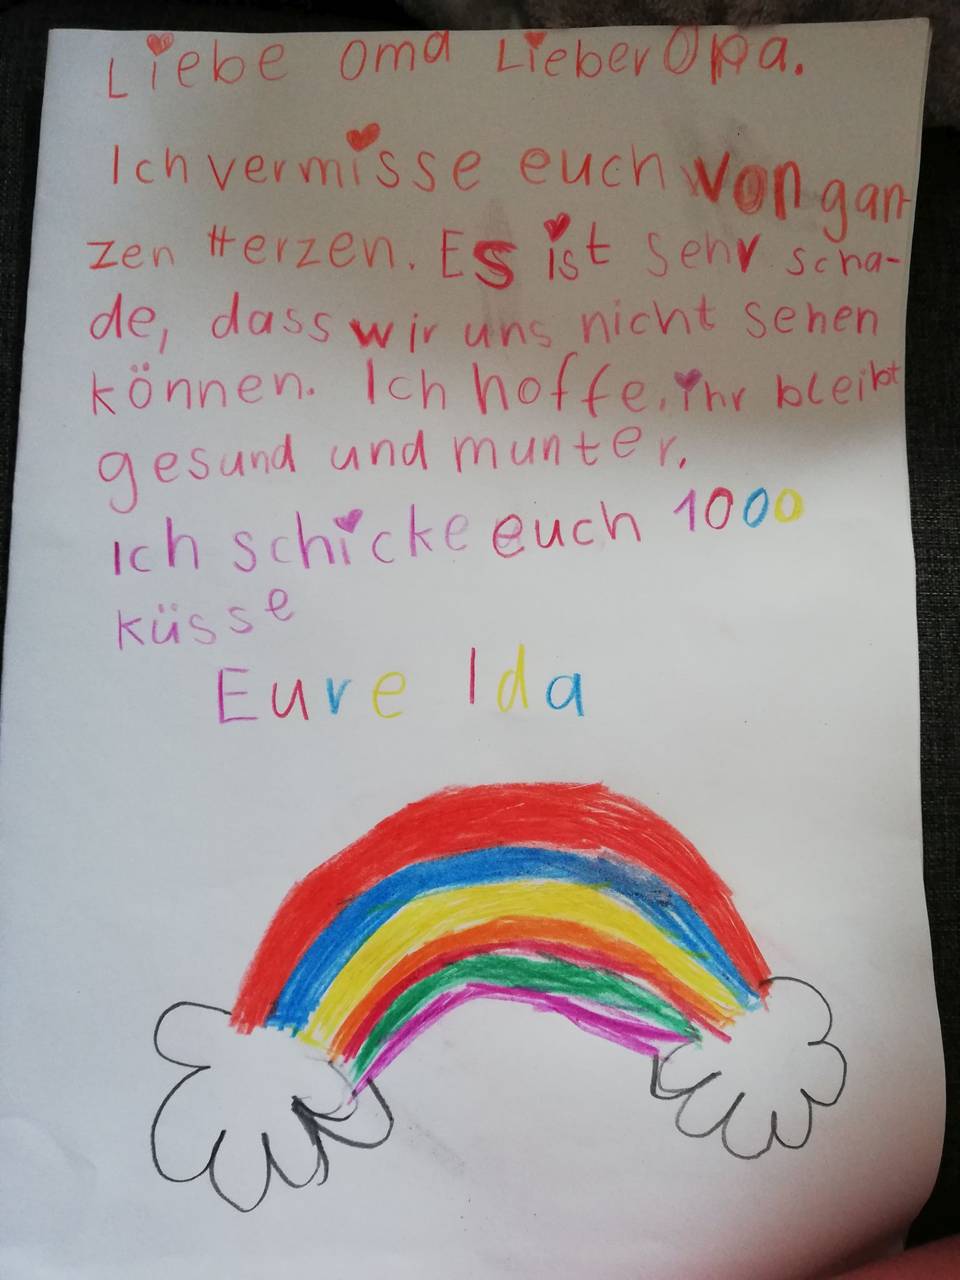 Liebe Oma Lieber Opa.
Ich vermisse euch von gan-
zen Herzen. Es ist sehr scha-
de, dass wir uns nicht sehen
können. Ich hoffe, ihr bleibt
gesund und munter.
Ich schicke euch 1000
küsse
Eure Ida